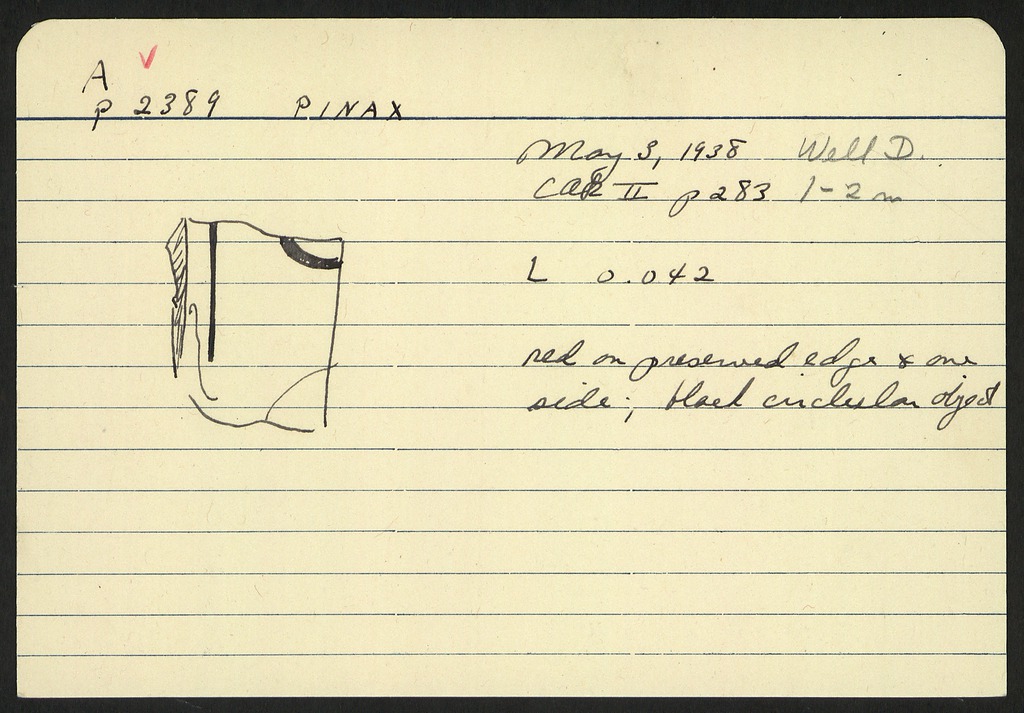 A ✓
P 2389 PINAX
May 3, 1938 Well D.
CAR II p 283 1-2 m
L 0.042
red on preserved edge & one
side; black circular object